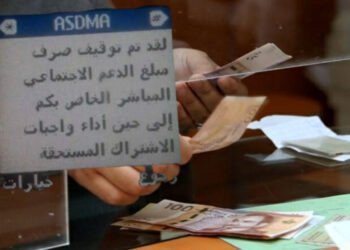 ASDMA
لقد تم توقيف صرف
مبلغ الدعم الاجتماعي
المباشر الخاص بكم
إلى حين أداء واجبات
الاشتراك المستحقة
رجوع خيارات
100